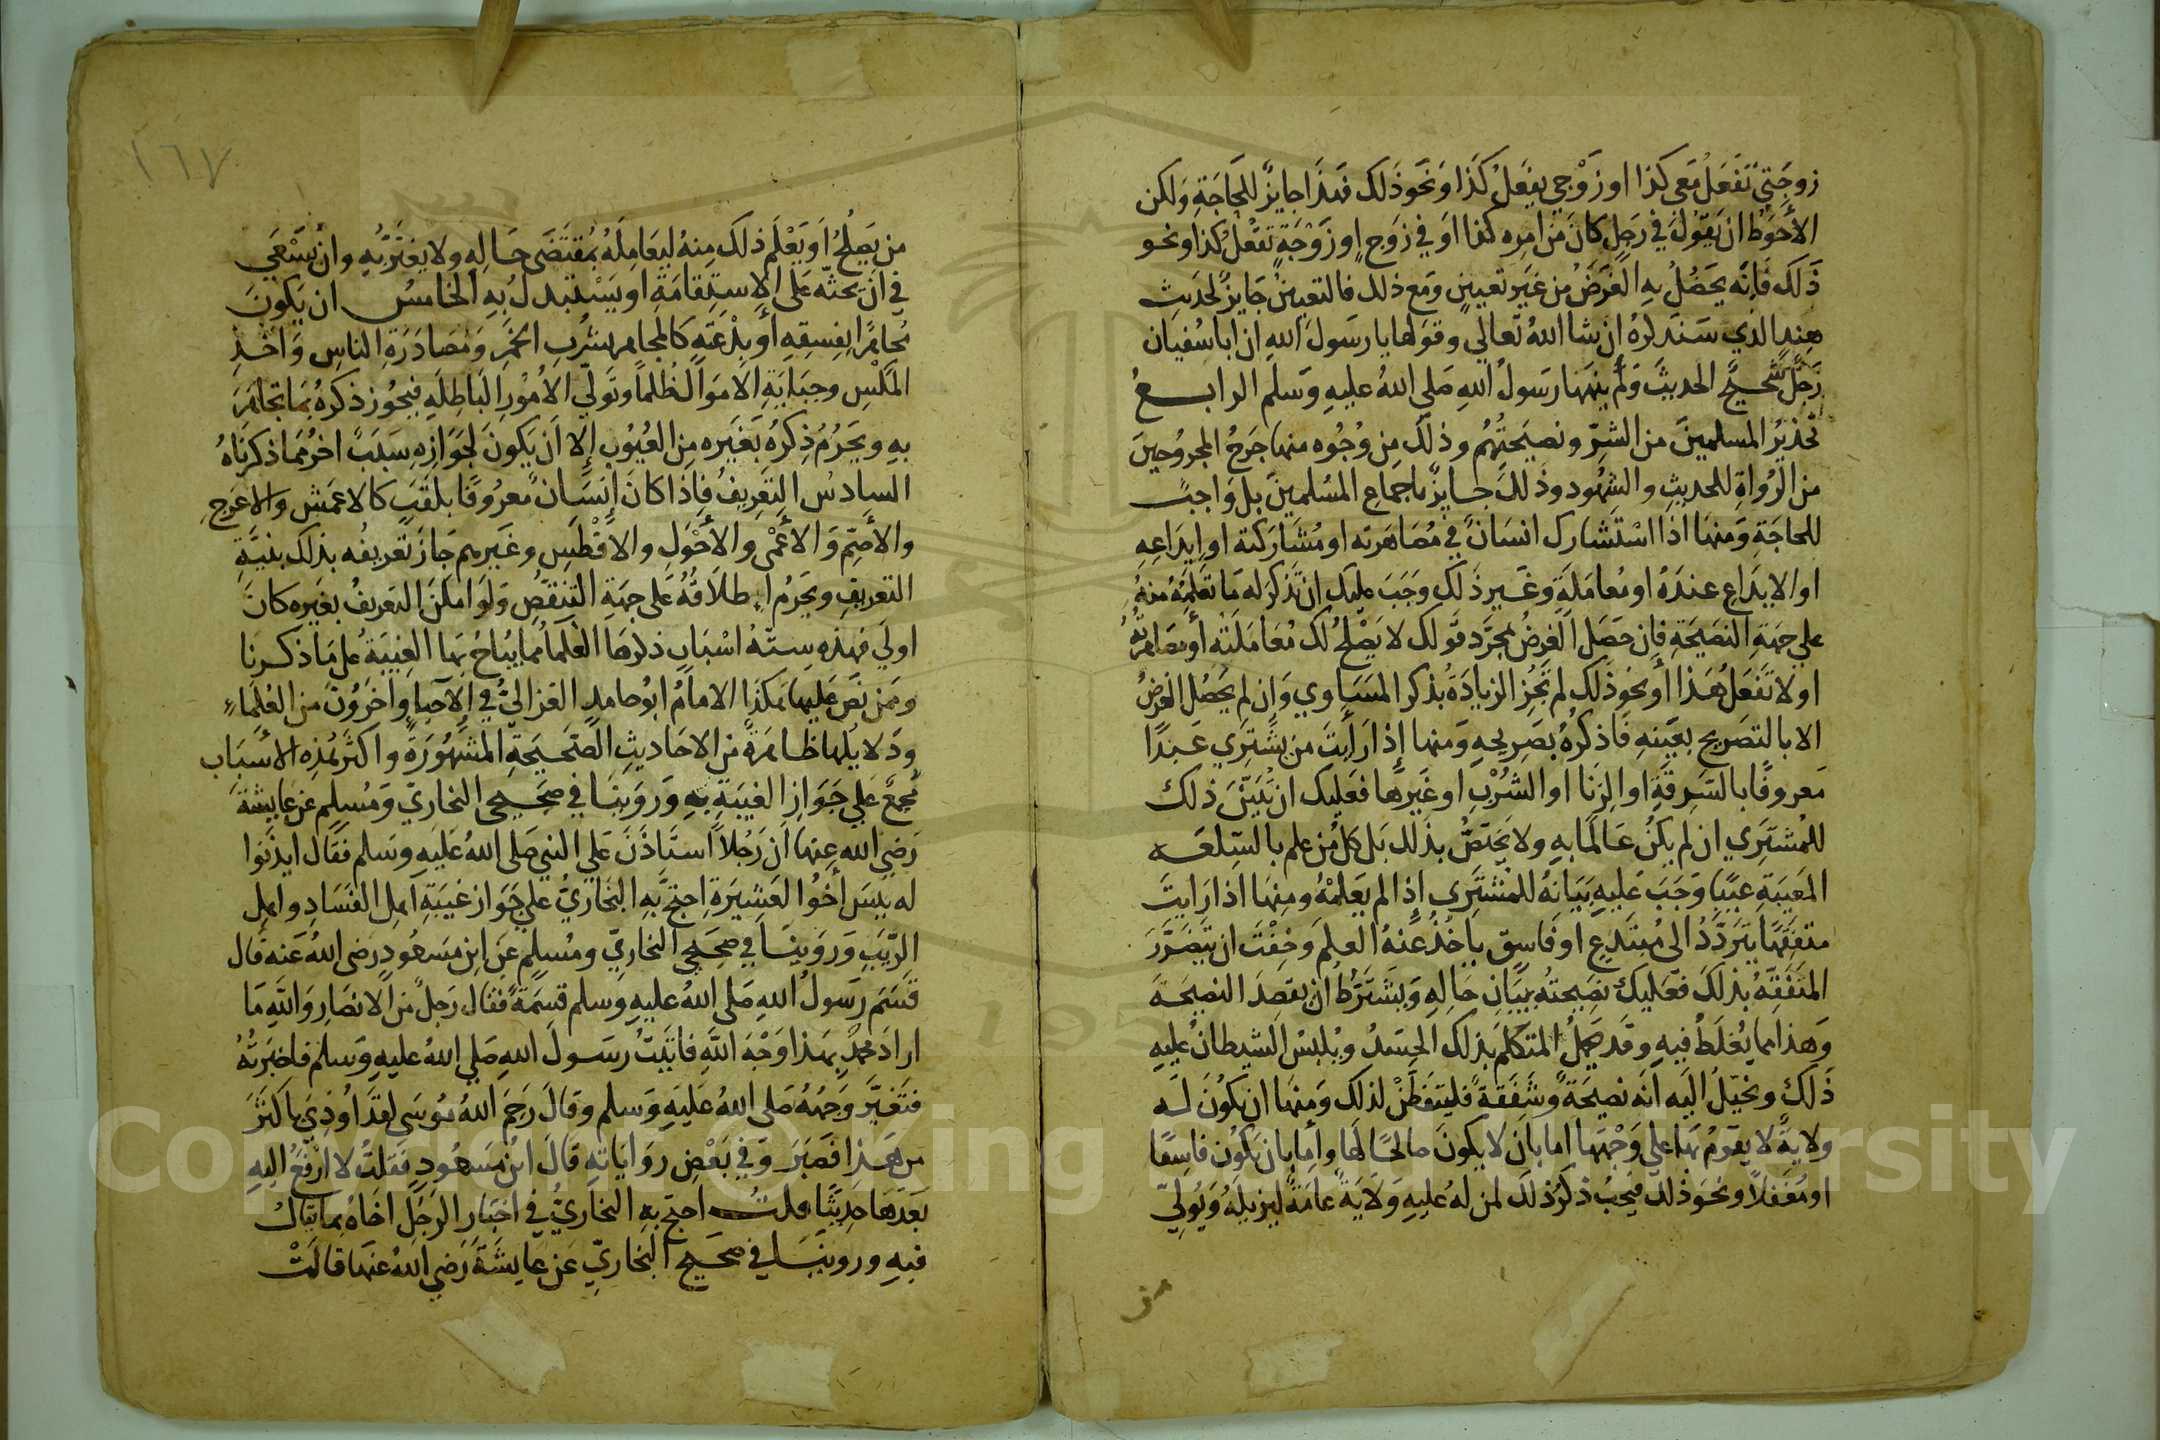 زوجتي تفعل معي كذا او زوجي يفعل كذا ونحو ذلك فهذا جايز للحاجة ولكن
الأحوط ان يقول في رجل كان من امره كذا او في زوج او زوجة تفعل كذا ونحو
ذلك فانه يحصل به الغرض من غير تعيين ومع ذلك فالتعيين جايز لحديث
هند الذي سنذكره ان شا الله تعالي وقولها يا رسول الله ان ابا سفيان
رجل شحيح الحديث ولم ينهها رسول الله صلي الله عليه وسلم الرابع
تحذير المسلمين من الشر ونصيحتهم وذلك من وجوه منها جرح المجروحين
من الرواة للحديث والشهود وذلك جايز باجماع المسلمين بل واجب
للحاجة ومنها اذا استشارك انسان في مصاهرته او مشاركته او ايداعه
او الايداع عنده او معاملة وغير ذلك وجب عليك ان تذكر له ما تعلمه منه
علي جهة النصيحة فان حصل الغرض بمجرد قولك لا يصلح لك معاملته أو مصاهرته
او لا تفعل هذا أو نحو ذلك لم تجز الزيادة بذكر المساوي وان لم يحصل الغرض
الا بالتصريح بعينه فاذكره بصريحه ومنها إذا رأيت من يشتري عبدا
معروفا بالسرقة او الزنا او الشرب او غيرها فعليك ان تبين ذلك
للمشتري ان لم يكن عالما به ولا يختص بذلك بل كل من علم بالسلعه
المعيبة عيبا وجب عليه بيانه للمشتري إذا لم يعلمه ومنها اذا رايت
متفقها يتردد الى مبتدع او فاسق ياخذ عنه العلم وخفت ان يتضرر
المتفقه بذلك فعليك نصيحته ببيان حاله ويشترط ان يقصد النصيحة
وهذا مما يغلط فيه وقد يحمل المتكلم بذلك الحسد ويلبس الشيطان عليه
ذلك ونخيل اليه انه نصيحة وشفقة فليتفطن لذلك ومنها ان يكون له
ولاية لا يقوم بها علي وجهها اما بان لا يكون صالحا لها وإما بان يكون فاسقا
او مغفلا ونحو ذلك فيجب ذكر ذلك لمن له عليه ولاية عامة ليزيله ويولي
من
١٦٧
من يصلح او يعلم ذلك منه ليعامله بمقتضى حاله ولا يغتر به وان يسعي
في ان يحثه على الاستقامة او يستبدل به الخامس ان يكون
مجاهرا بفسقه أو بدعته كالمجاهر بشرب الخمر ومصادرة الناس واخذ
المكس وجباية الاموال ظلما وتولي الامور الباطله فيجوز ذكره بما تجاهر
به ويحرم ذكره بغيره من العيوب إلا ان يكون لجوازه سبب اخر مما ذكرناه
السادس التعريف فاذا كان إنسان معروفا بلقب كالاعمش والاعرج
والأصم والأعمى والأحول والافطس وغيرهم جاز تعريفه بذلك بنية
التعريف ويحرم اطلاقه على جهة التنقص ولو امكن التعريف بغيره كان
اولي فهذه ستة اسباب ذكرها العلما مما يباح بها الغيبة على ما ذكرنا
وممن نص عليها هكذا الامام ابو حامد الغزالي في الاحيا واخرون من العلماء
ودلايلها ظاهرة من الاحاديث الصحيحة المشهورة واكثر هذه الأسباب
مجمع علي جواز الغيبة به وروينا في صحيحي البخاري ومسلم عن عايشة
رضي الله عنها ان رجلا استاذن علي النبي صلى الله عليه وسلم فقال ايذنوا
له بيس أخوا العشيرة احتج به البخاري علي جواز غيبة اهل الفساد واهل
الريب وروينا في صحيحي البخاري ومسلم عن ابن مسعود رضي الله عنه قال
قسم رسول الله صلى الله عليه وسلم قسمة فقال رجل من الانصار والله ما
اراد محمد بهذا وجه الله فاتيت رسول الله صلي الله عليه وسلم فاخبرته
فتغير وجهه صلي الله عليه وسلم وقال رحم الله موسى لقد اوذي باكثر
من هذا فصبر وفي بعض رواياته قال ابن مسعود فقلت لا ارفع اليه
بعدها حديثا قلت احتج به البخاري في اخبار الرجل اخاه بما يقال
فيه وروينا في صحيح البخاري عن عايشة رضي الله عنها قالت
Copyright © King Saud University
1957